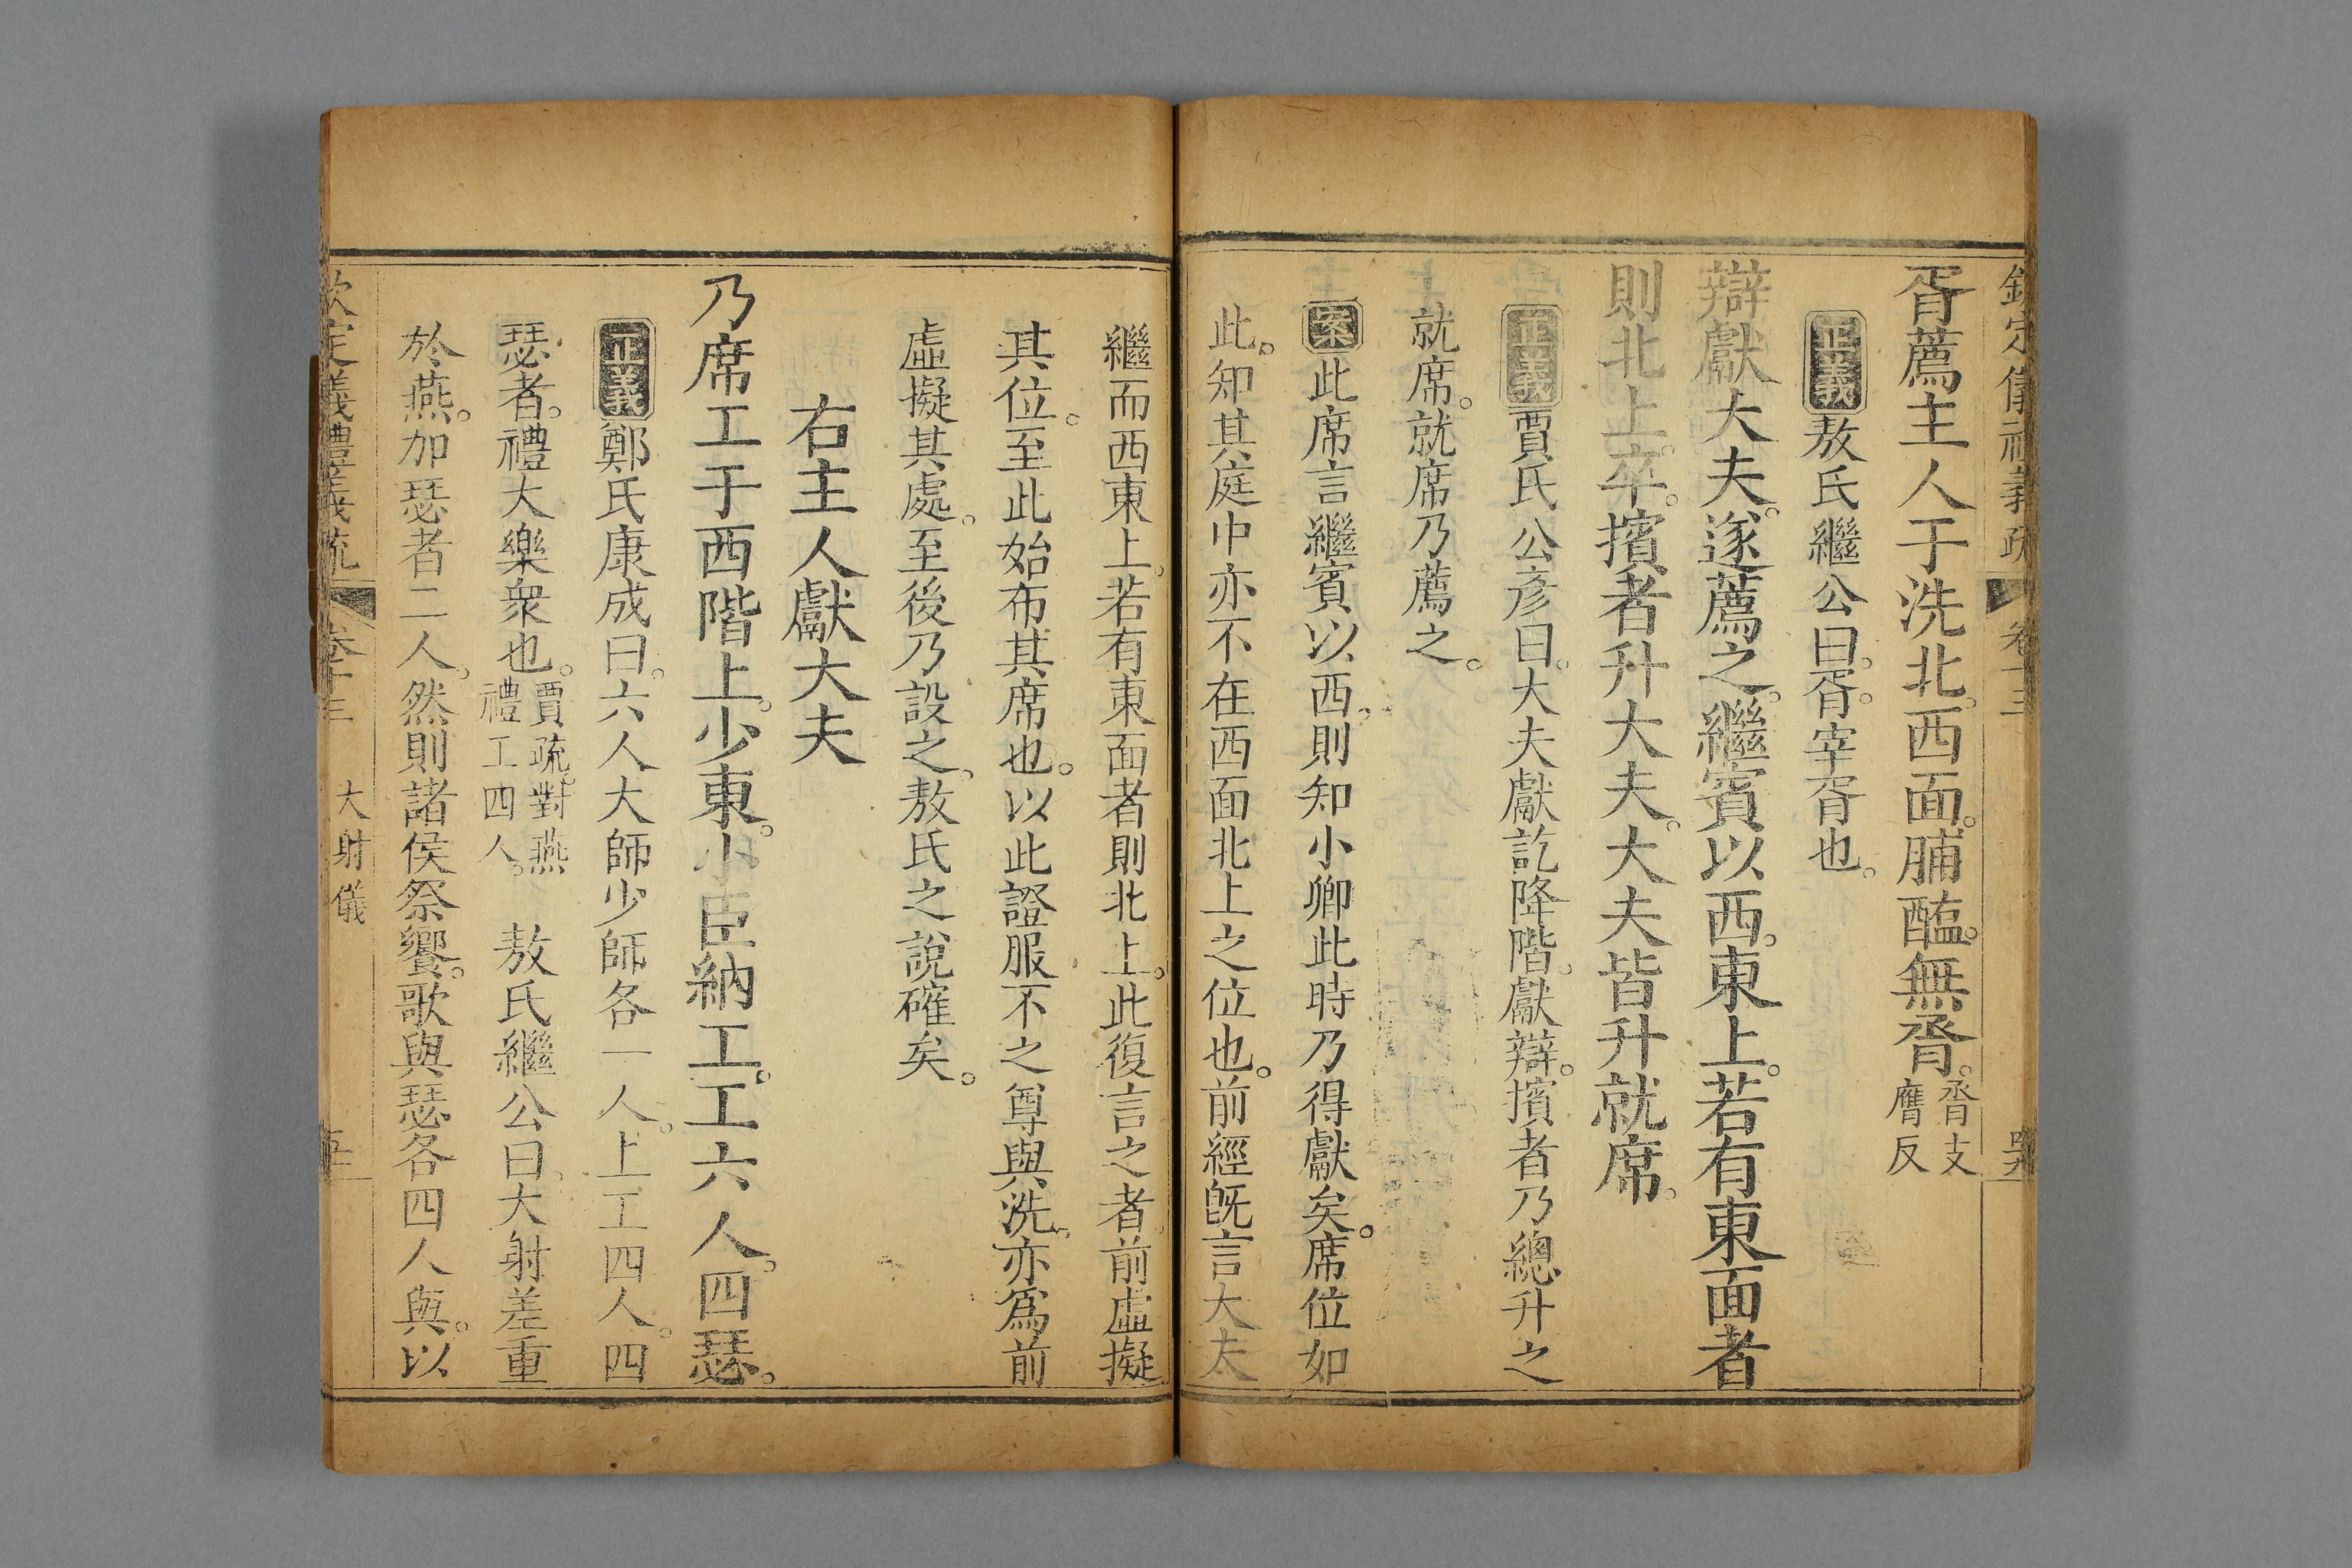 欽定儀禮義疏 卷十三
胥薦主人于洗北。西面。脯醢。無脀。脀支
膺反
正義敖氏繼公曰。胥。宰胥也。
辯獻大夫。遂薦之。繼賓以西。東上。若有東面者
則北上。卒。擯者升大夫。大夫皆升就席。
正義賈氏公彥曰。大夫獻訖降階。獻辯。擯者乃總升之
就席。就席乃薦之。
案此席言繼賓以西。則知小卿此時乃得獻矣。席位如
此。知其庭中亦不在西面北上之位也。前經旣言大夫
繼而西東上。若有東面者則北上。此復言之者。前虛擬
其位。至此始布其席也。以此證服不之尊與洗。亦爲前
虛擬其處。至後乃設之。敖氏之說確矣。
右主人獻大夫
乃席工于西階上少東。小臣納工。工六人。四瑟。
正義鄭氏康成曰。六人大師少師各一人。上工四人。四
瑟者。禮大樂衆也。賈疏。對燕
禮工四人。
敖氏繼公曰。大射差重
於燕。加瑟者二人。然則諸侯祭饗。歌與瑟各四人與。以
欽定儀禮義疏 卷十三 大射儀